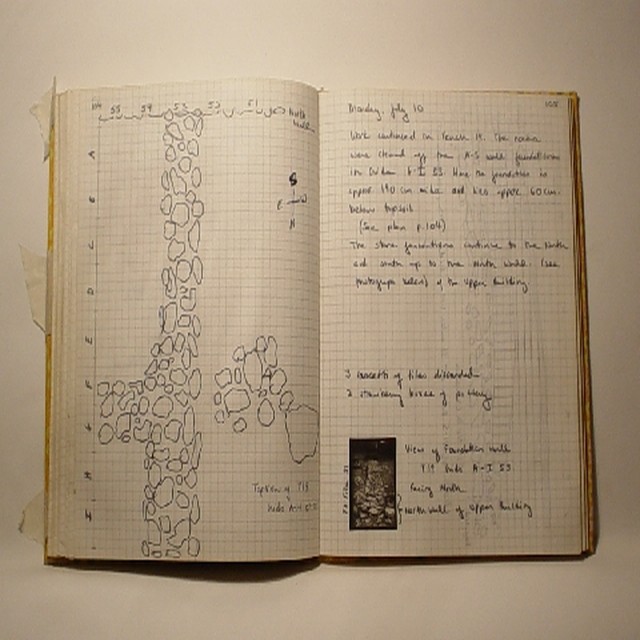 104
55 54 53 52 51 North Wall
A
B
C
D
E
F
G
H
I
S
E W
N
Top Plan of T19
Grids A-I
Monday, July 10
105
Work continued in Trench 19. The rocks
were cleaned off the A-S wall foundations
in Grids A-I 53. Here the foundation is
appx. 190 cm wide and lies appx. 60 cm.
below topsoil.
(See plan p. 104)
The stone foundations continue to the North
and south up to the North Wall (see
photograph below) of the Upper Building.
3 baskets of tiles discarded
2 strawberry boxes of pottery
View of Foundation Wall
T19 Grids A-I 53
facing North
North wall of Upper Building